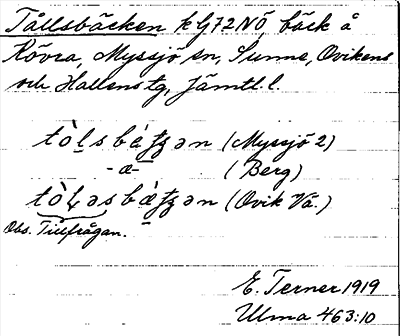 Tållsbäcken kG72NÖ, bäck å
Rövra, Myssjö sn, Sunne, Ovikens
och Hallens tg, Jämtl. l.
tòl̠sbáʈʂən (Myssjö 2)
-æ- (Berg)
tòl̠əsbǽʈʂən (Ovik Vä.)
Obs. Tillfrågan.
E. Terner 1919
Ulma 463:10